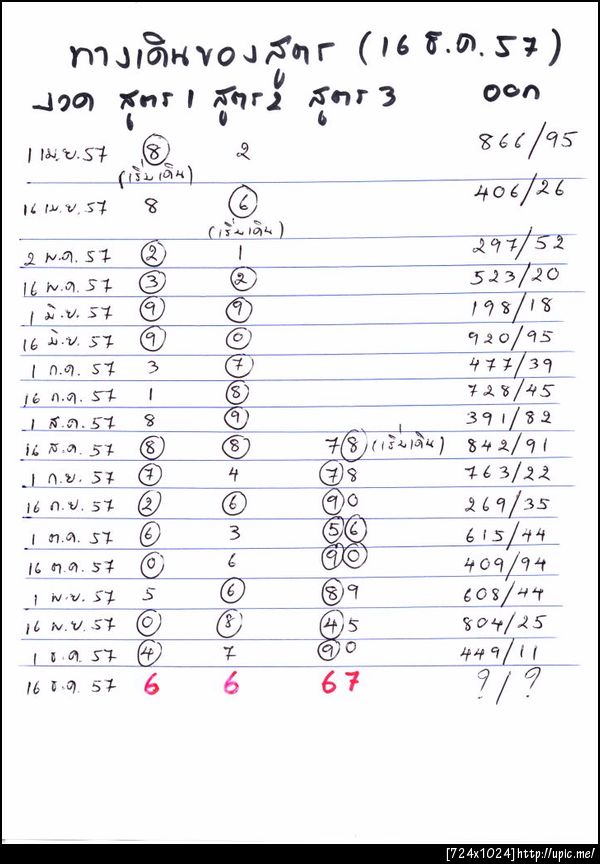 ทางเดินของสูตร (16 ธ.ค. 57)
งวด สูตร 1 สูตร 2 สูตร 3 ออก
1 เม.ย. 57 8 2 866/95
(เริ่มเดิน)
16 เม.ย. 57 8 6 406/26
(เริ่มเดิน)
2 พ.ค. 57 2 1 297/52
16 พ.ค. 57 3 2 523/20
1 มิ.ย. 57 9 9 198/18
16 มิ.ย. 57 9 0 920/95
1 ก.ค. 57 3 7 477/39
16 ก.ค. 57 1 8 728/45
1 ส.ค. 57 8 9 391/82
16 ส.ค. 57 8 8 78 (เริ่มเดิน) 842/91
1 ก.ย. 57 7 4 78 763/22
16 ก.ย. 57 2 6 90 269/35
1 ต.ค. 57 6 3 56 615/44
16 ต.ค. 57 0 6 90 409/94
1 พ.ย. 57 5 6 89 608/44
16 พ.ย. 57 0 8 45 804/25
1 ธ.ค. 57 4 7 90 449/11
16 ธ.ค. 57 6 6 67 ?/?
[724x1024]http://upic.me/